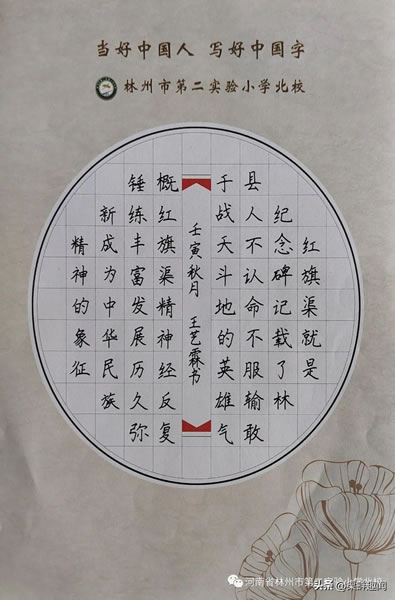 当好中国人 写好中国字
林州市第二实验小学北校
红旗渠就是
纪念碑记载了林
县人不认命不服输敢
于战天斗地的英雄气
概红旗渠精神经反复
锤练丰富发展历久弥
新成为中华民族
精神的象征
壬寅秋月 王艺霖书
河南省林州市第二实验小学北校
头条